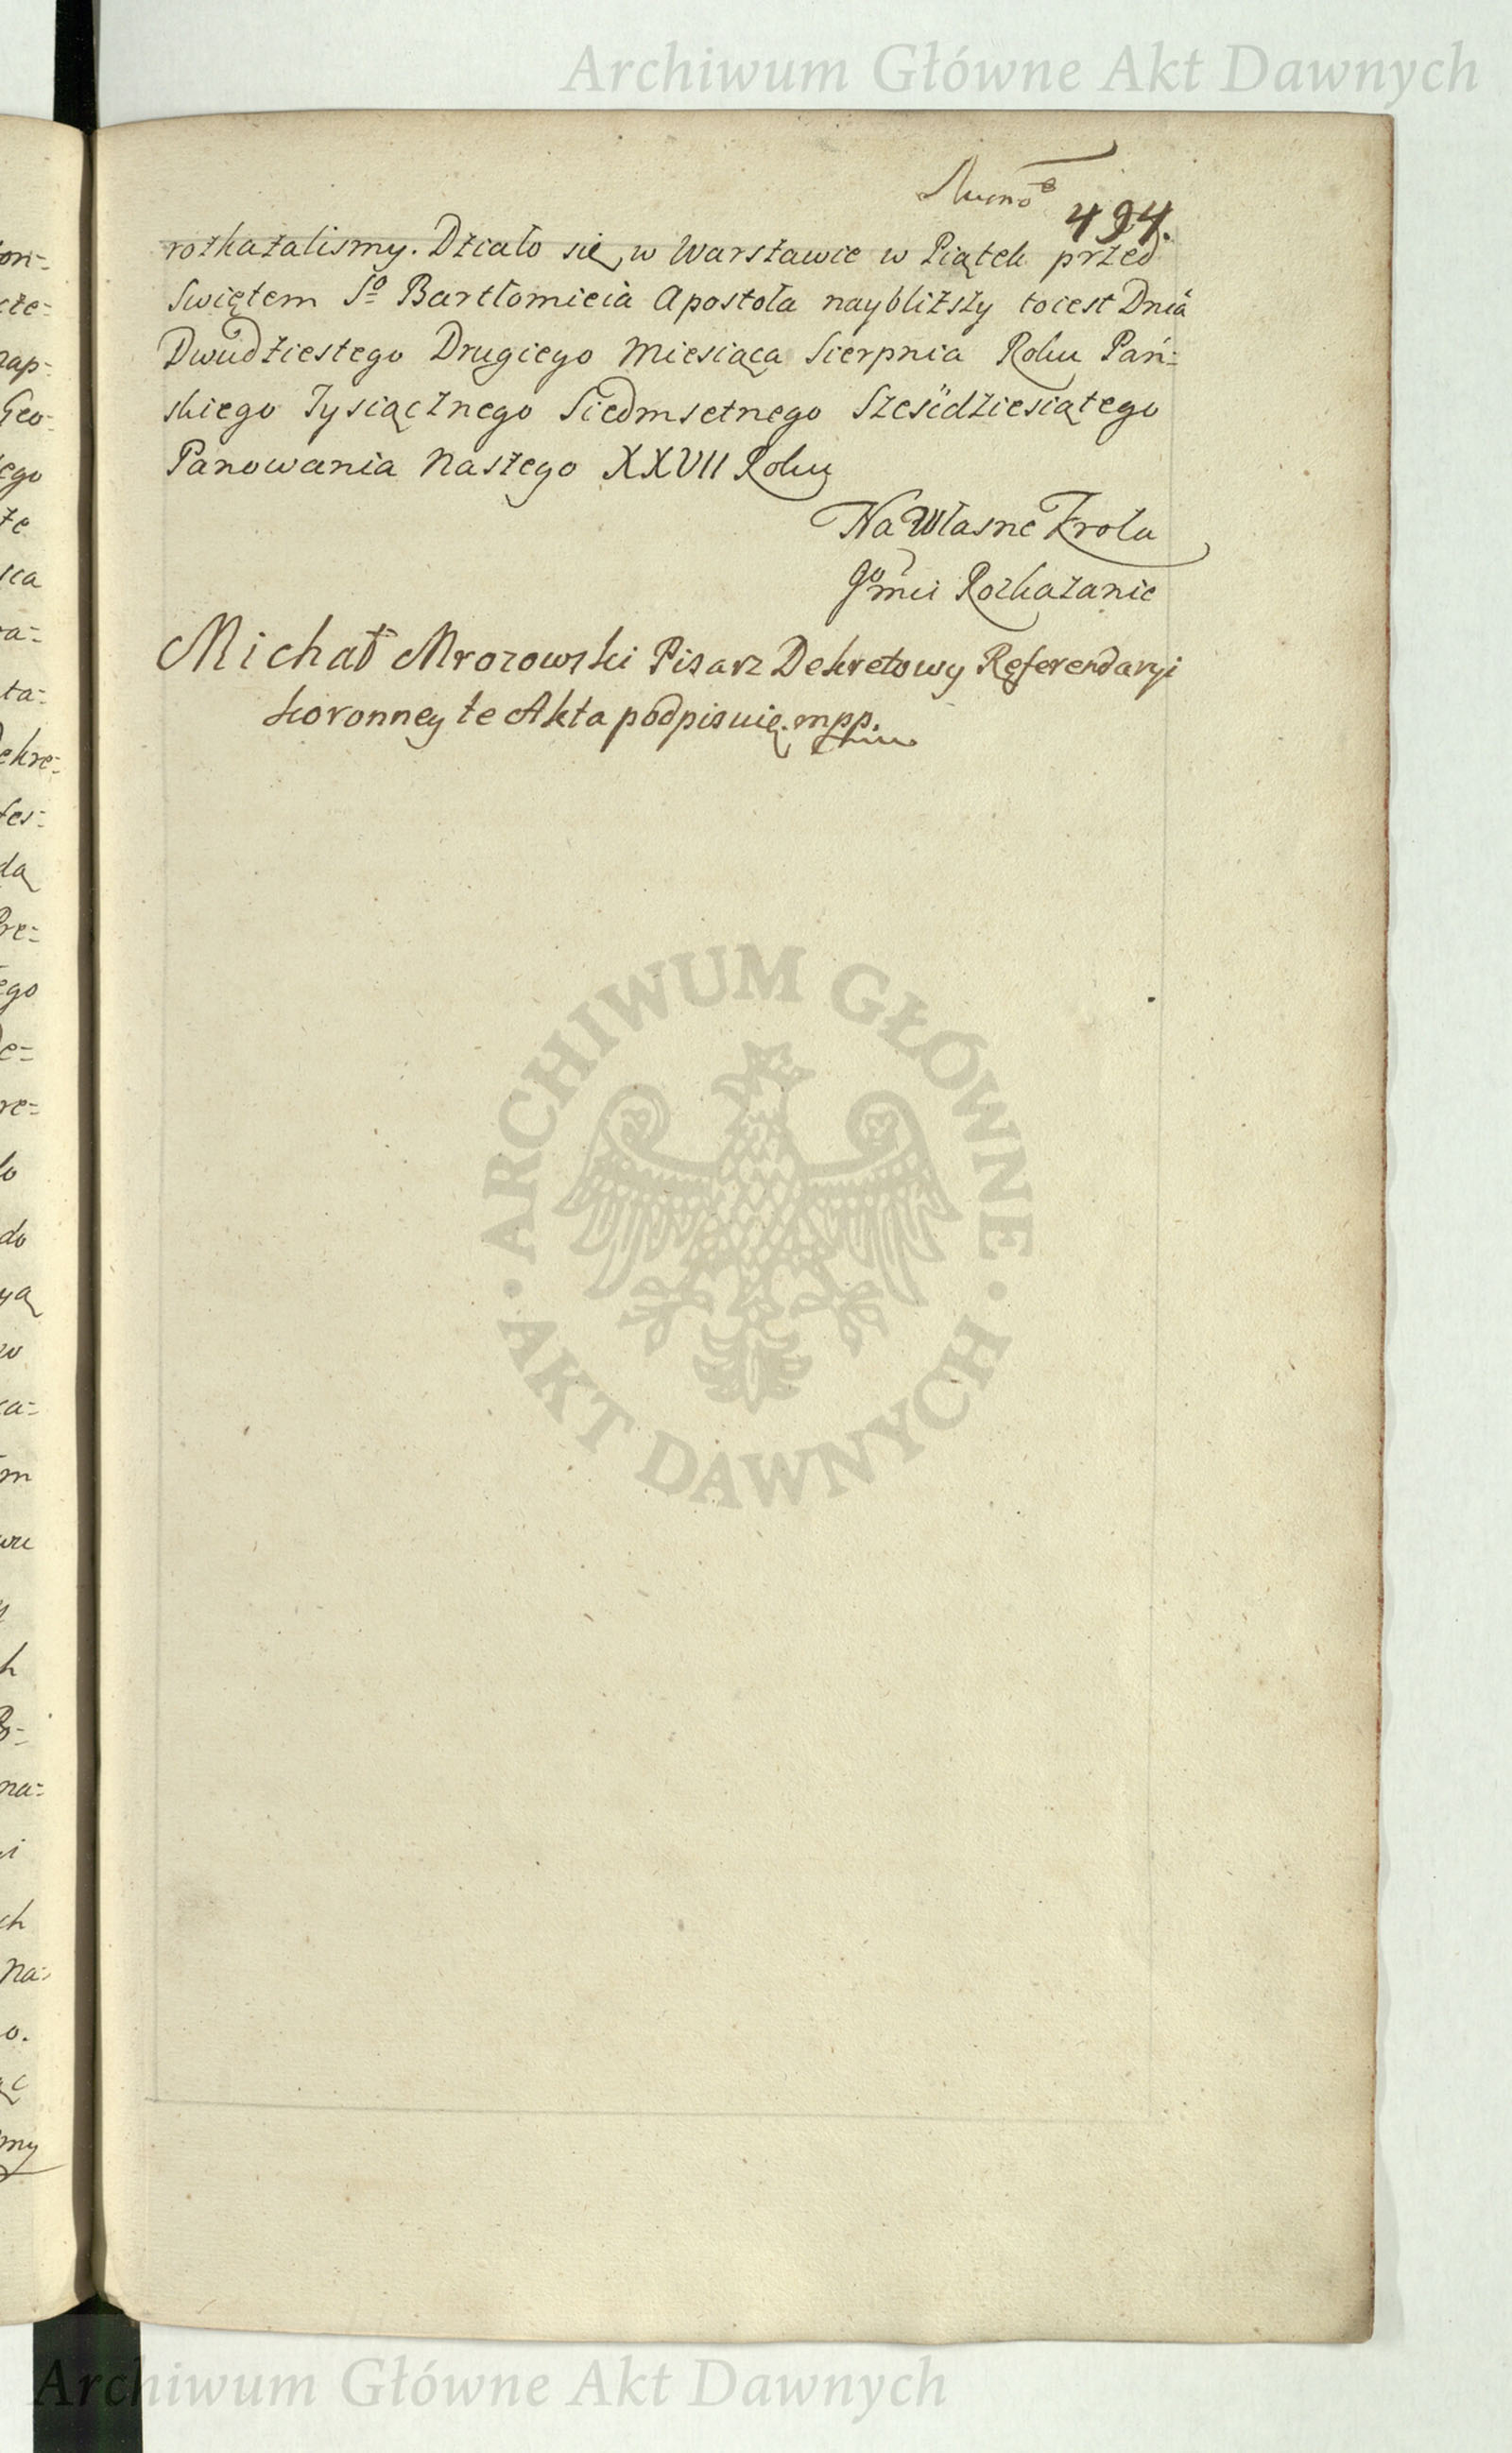 Archiwum Główne Akt Dawnych
494.
rozkazalismy. Działo się w Warszawie w Piątek przed
Swiętem So Bartłomieia Apostoła naybliższy toiest Dnia
Dwudziestego Drugiego Miesiąca Sierpnia Roku Pań=
skiego Tysiącznego Siedmsetnego Sześćdziesiątego
Panowania Naszego XXVII Roku
Na Własne Krola
Jomci Rozkazanie
Michał Mrozowski Pisarz Dekretowy Referendaryi
Koronney te Akta podpisuię. mpp.
ARCHIWUM GŁÓWNE
AKT DAWNYCH
Archiwum Główne Akt Dawnych